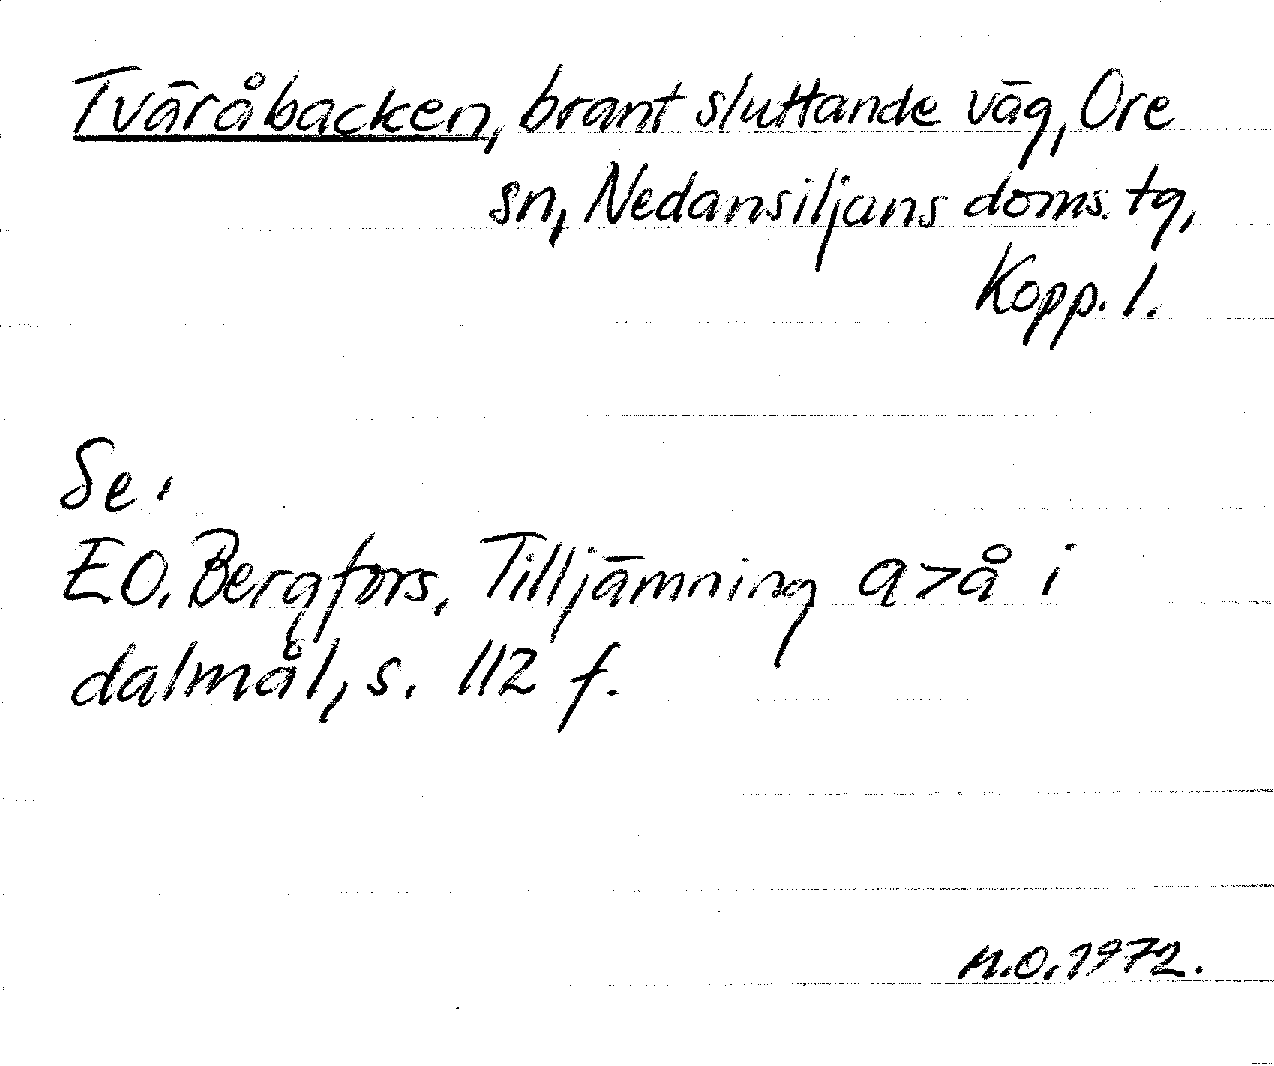 Tväråbacken, brant sluttande väg, Ore
sn, Nedansiljans doms. tg,
Kopp. l.
Se:
E.O. Bergfors, Tilljämning a>å i
dalmål, s. 112 f.
M.O. 1972.